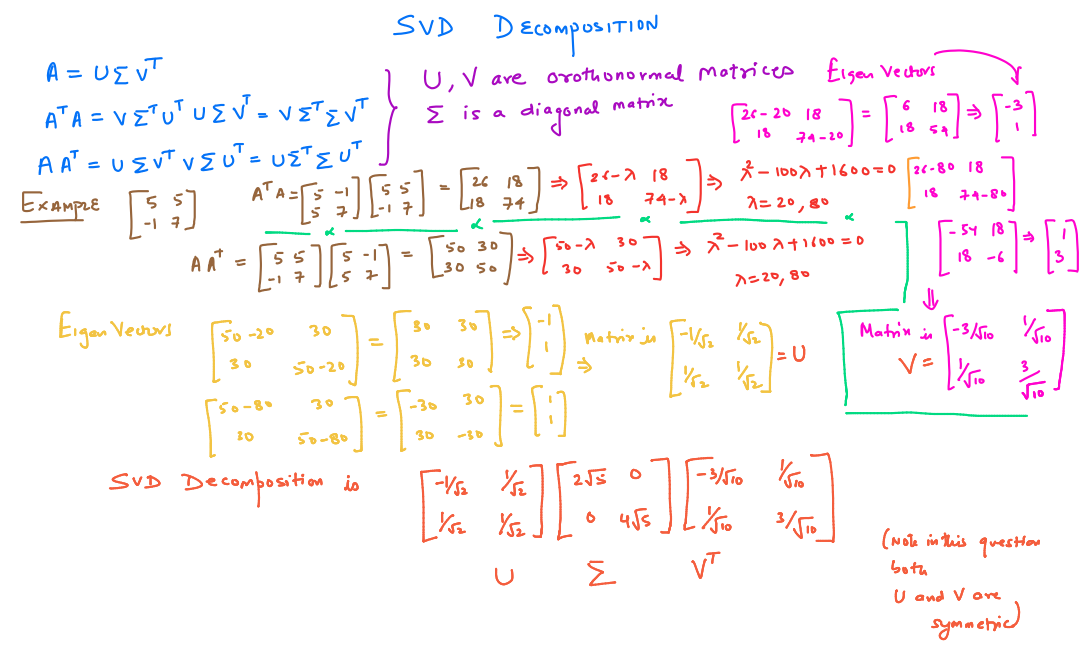 SVD DECOMPOSITION
A = UΣV^T
A^T A = VΣ^T U^T UΣV^T = VΣ^TΣV^T
AA^T = UΣV^T VΣU^T = UΣ^TΣU^T
U, V are orothonormal matrices
Σ is a diagonal matrix
Eigen Vectors
[26-20 18; 18 74-20] = [6 18; 18 54] ⇒ [-3; 1]
EXAMPLE [5 5; -1 7]
A^T A = [5 -1; 5 7] [5 5; -1 7] = [26 18; 18 74] ⇒ [26-λ 18; 18 74-λ] ⇒ λ²-100λ+1600=0
λ = 20, 80
[26-80 18; 18 74-80]
[-54 18; 18 -6] ⇒ [1; 3]
AA^T = [5 5; -1 7] [5 -1; 5 7] = [50 30; 30 50] ⇒ [50-λ 30; 30 50-λ] ⇒ λ²-100λ+1600=0
λ=20, 80
Eigen Vectors [50-20 30; 30 50-20] = [30 30; 30 30] ⇒ [-1; 1] ⇒ Matrix is [-1/√2 1/√2; 1/√2 1/√2] = U
⇓
Matrix is V = [-3/√10 1/√10; 1/√10 3/√10]
[50-80 30; 30 50-80] = [-30 30; 30 -30] = [1; 1]
SVD Decomposition is [-1/√2 1/√2; 1/√2 1/√2] [2√5 0; 0 4√5] [-3/√10 1/√10; 1/√10 3/√10]
U Σ V^T
(Note in this question
both
U and V are
symmetric)